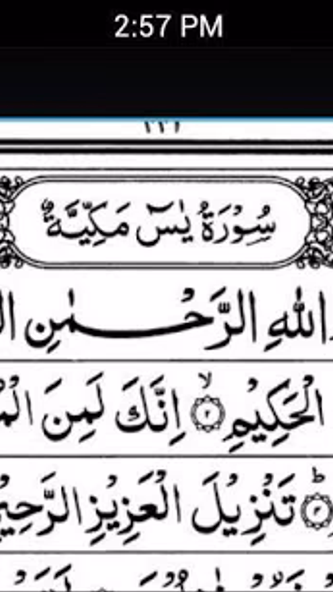 2:57 PM
سُوْرَةُ يٰسٓ مَكِّيَّةٌ
اللهِ الرَّحْمٰنِ
الْحَكِيْمِ ۙ﴿۲﴾ اِنَّكَ لَمِنَ
﴿۴﴾ؕ تَنْزِيْلَ الْعَزِيْزِ الرَّحِيْ